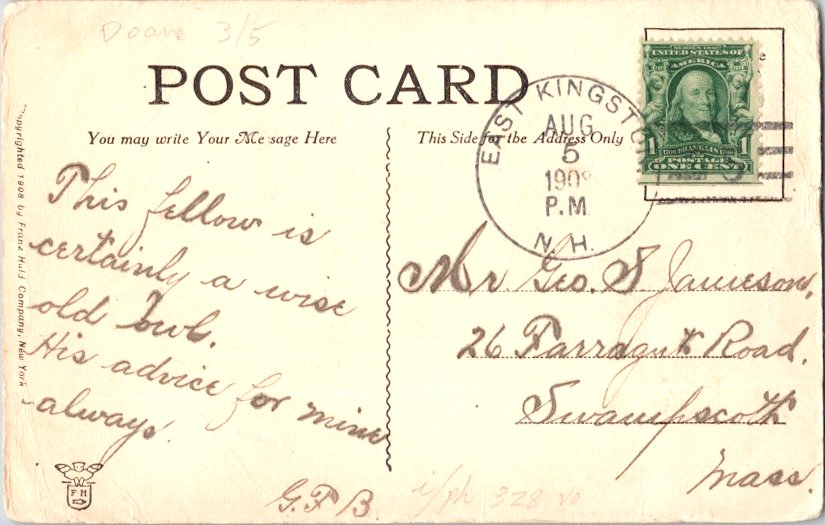 Doane 3/5
POST CARD
You may write Your Message Here
This Side for the Address Only
EAST KINGSTON
AUG
5
1908
P.M.
N.H.
SERIES 1902
UNITED STATES OF
AMERICA
1 FRANKLIN 1
POSTAGE
ONE CENT
Copyrighted 1908 by Franz Huld Company, New York
This fellow is
certainly a wise
old owl.
His advice for mine
always.
G.F.B.
Mr. Geo. S Jameson,
26 Farragut Road.
Swampscott
Mass.
F H
328